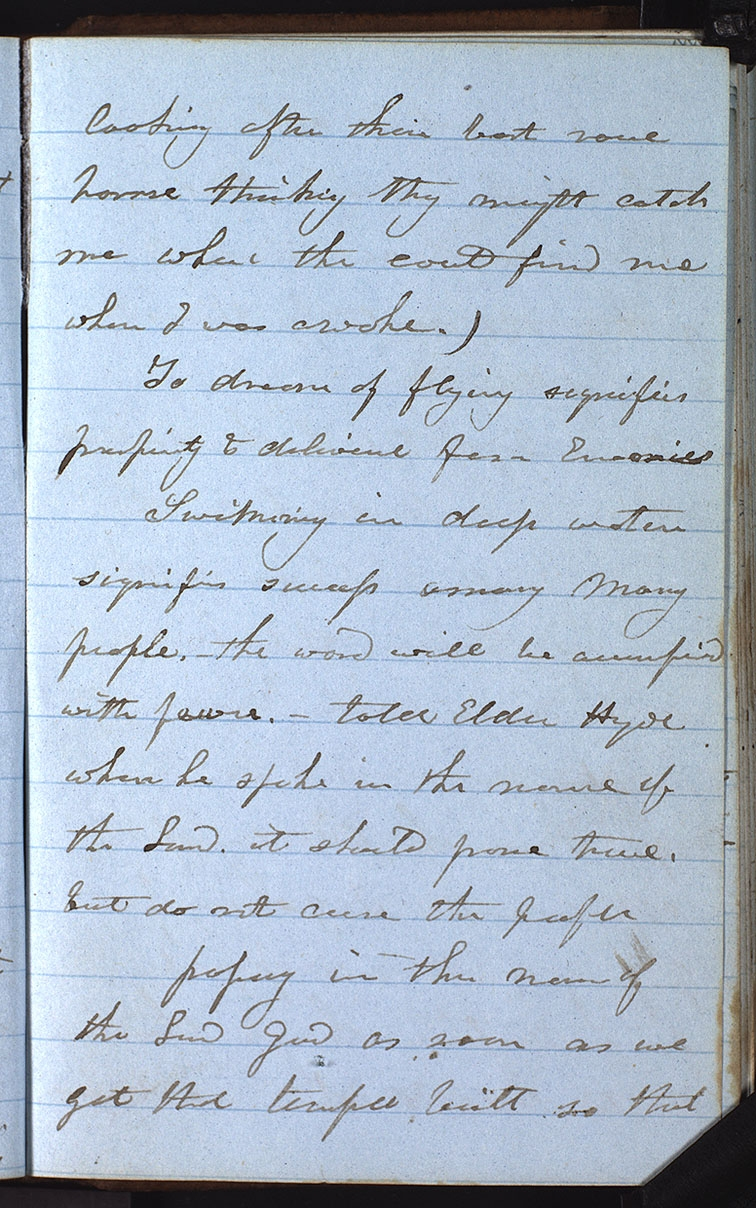 looking after their best race
horse thinking they might catch
me when the could find me
when I was awoke.)
To dream of flying signifies
prosperity & deliverance from Enemies
Swimming in deep water
signifies success among many
people. - the word will be accompanied
with power. - told Elder Hyde
when he spoke in the name of
the Lord. it should prove true.
but do not curse the people
prophecy in the name of
the Lord God as soon as we
get the temple built so that